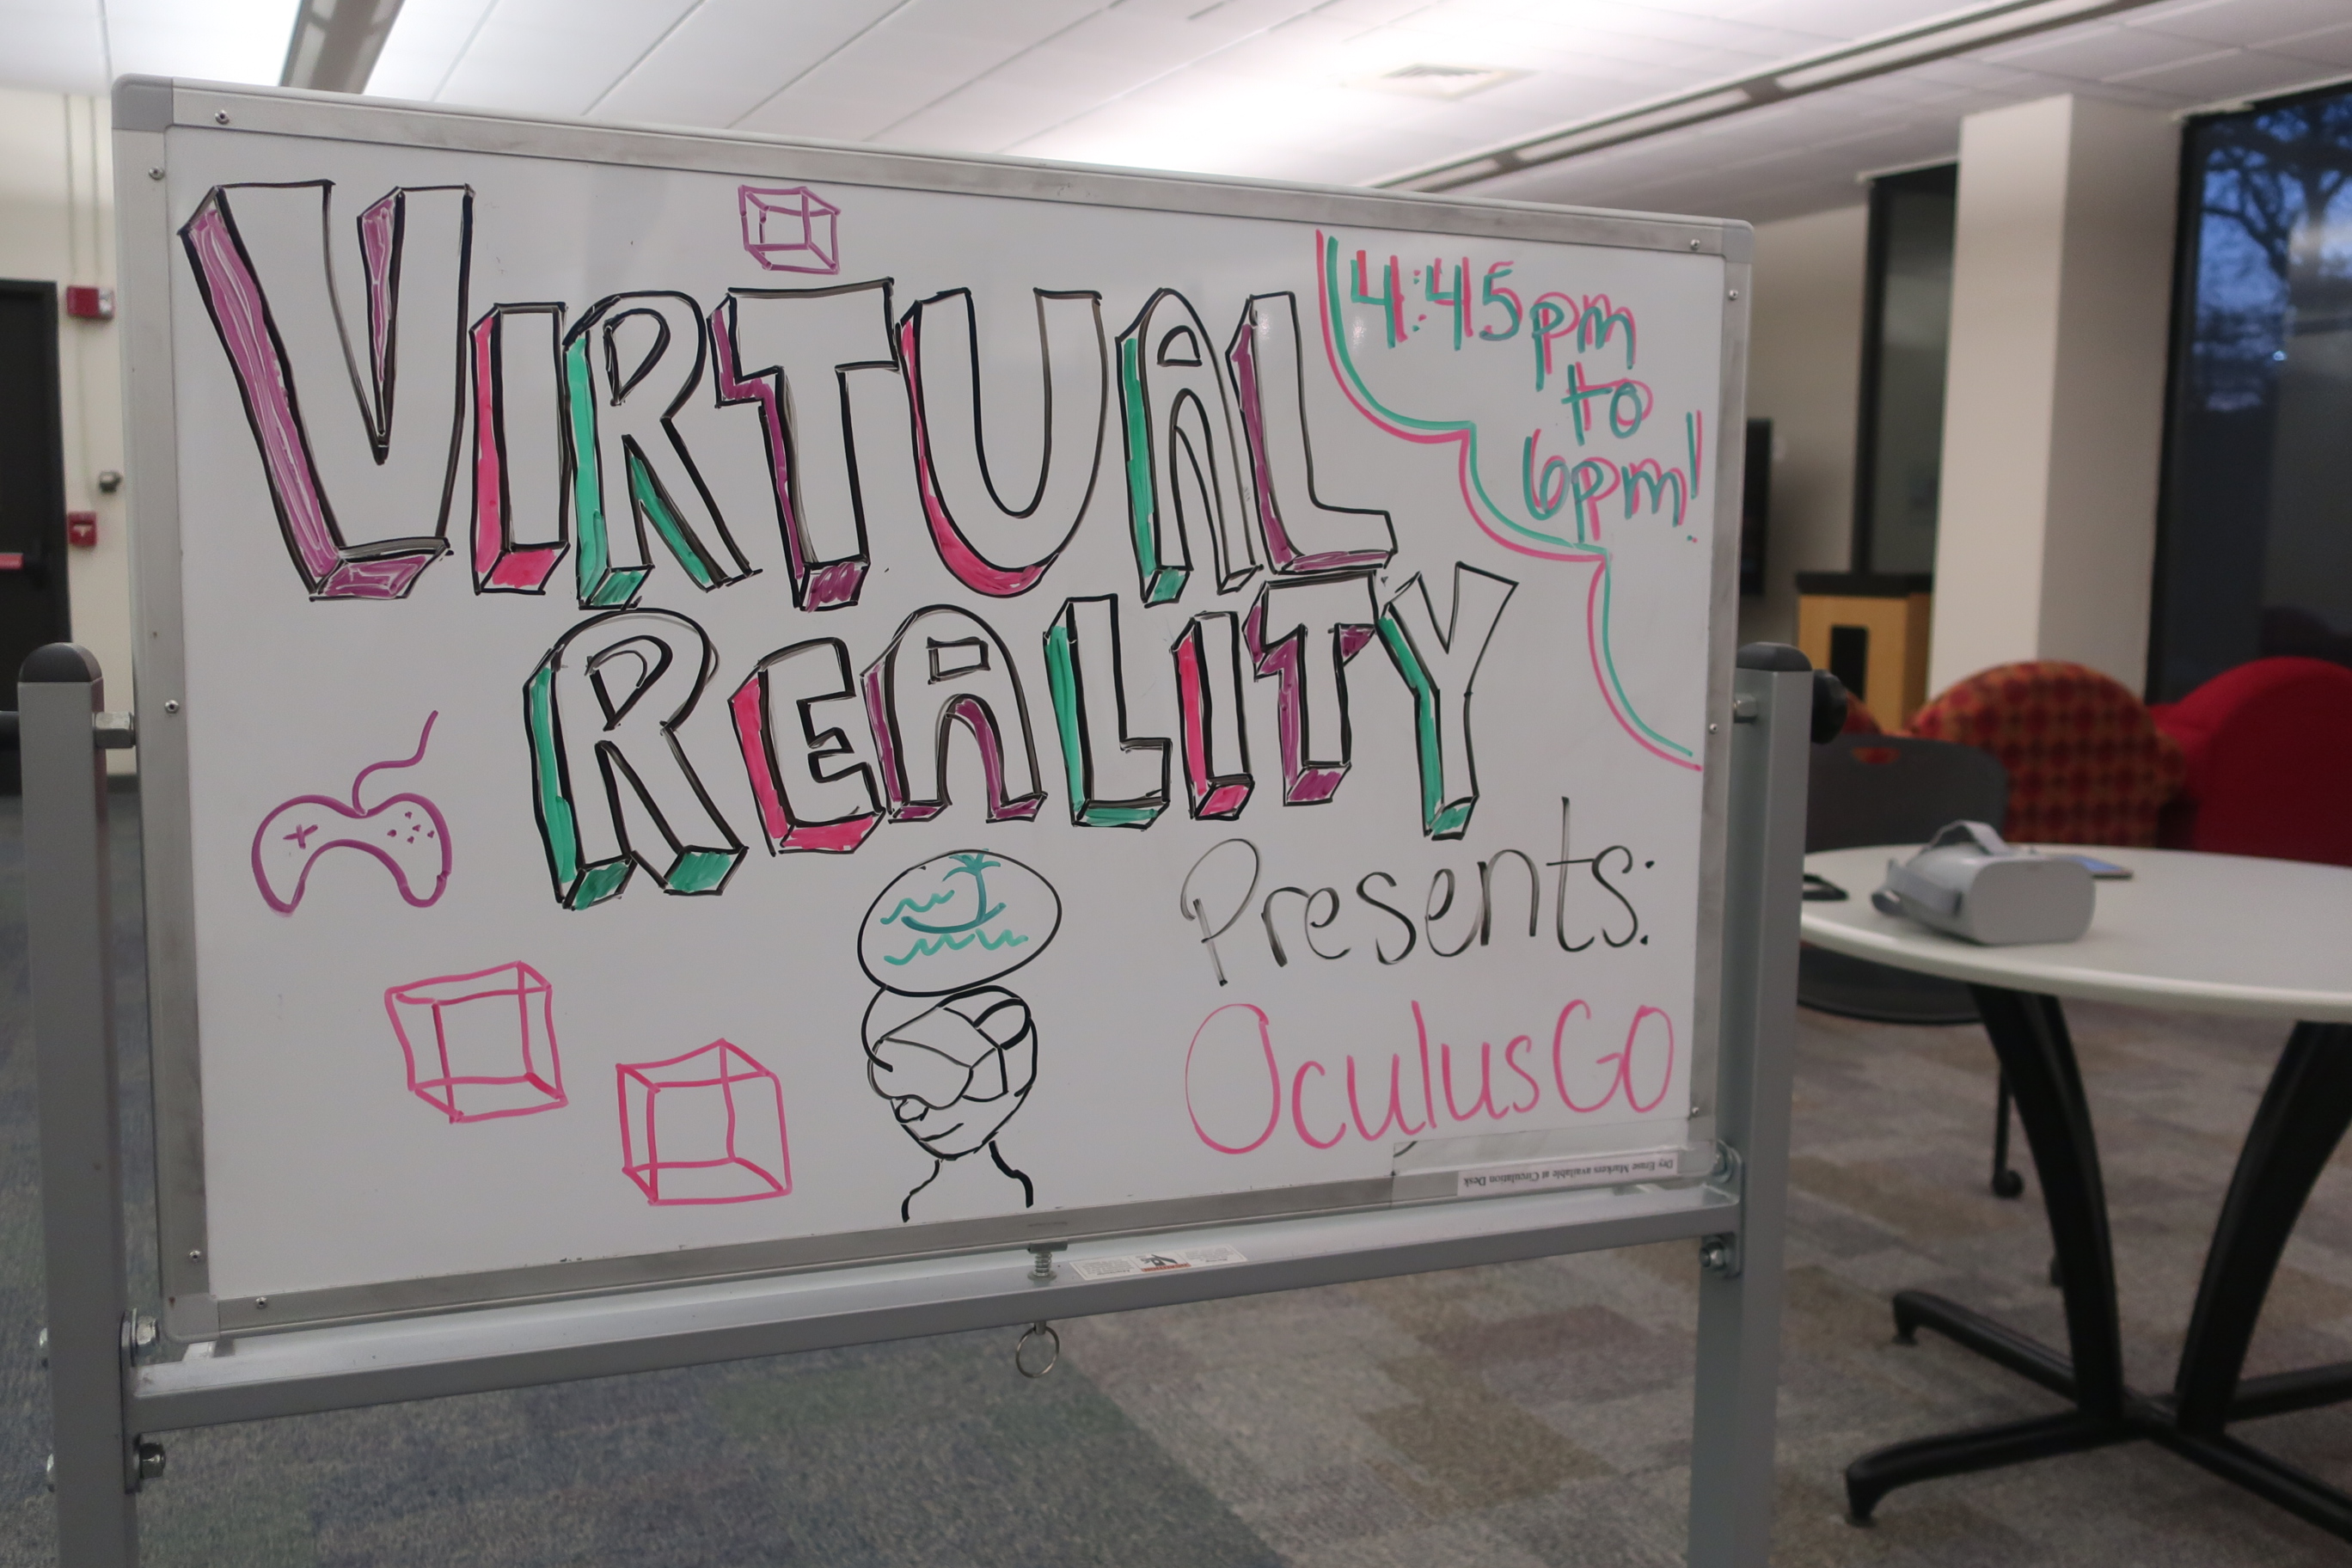 VIRTUAL
REALITY
4:45pm
to
6pm!
Presents:
Oculus GO
Dry Erase Markers available at Circulation Desk